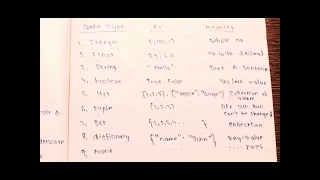 Data Type Ex meaning
1. Integer 5, 100, -7 Whole no
2. Float no with decimal
3. String Text & sentence
4. boolean True, False Yes/no value
5. list [1,2,3], ["apple", "grape"] Collection of value
6. tuple (1,2,3) like list but can't be change
7. Set {1,2,3, .... } collection
8. dictionary {"name": "John"} Key-Value
9. None